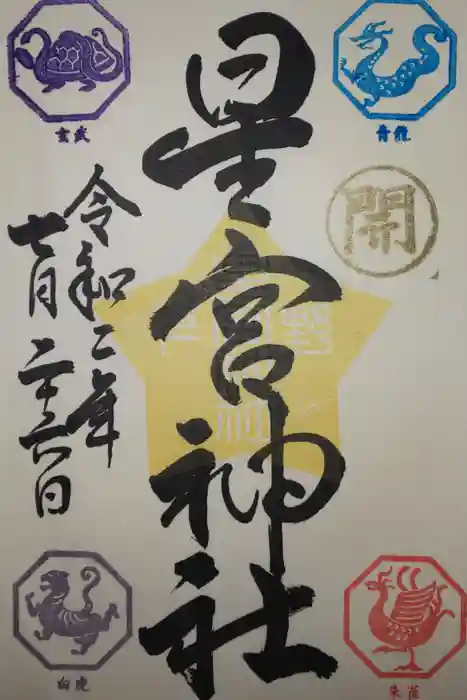 星宮神社
令和二年
七月二十六日
玄武
青龍
白虎
朱雀